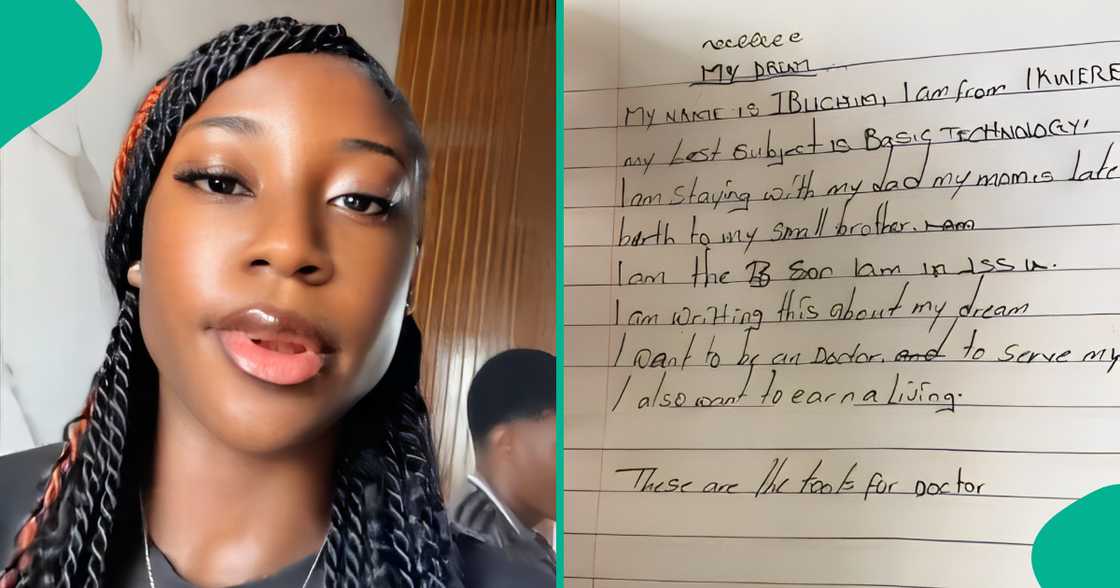 MY DREAM
MY NAME IS IBUCHIM, I am from IKWERE
my best subject is BASIC TECHNOLOGY,
I am staying with my dad my mom is late
barth to my small brother. I am
I am the B Son I am in JSS
I am writting this about my dream
I want to be an Doctor. and to serve my
I also want to earn a living.
These are the tools for Doctor